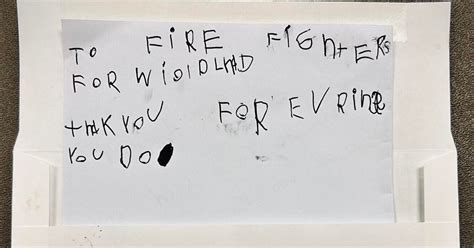 TO FIRE FIGHTERS
FOR WIOIDLHD
tHK YOU FOR EVRINE
YOU DO